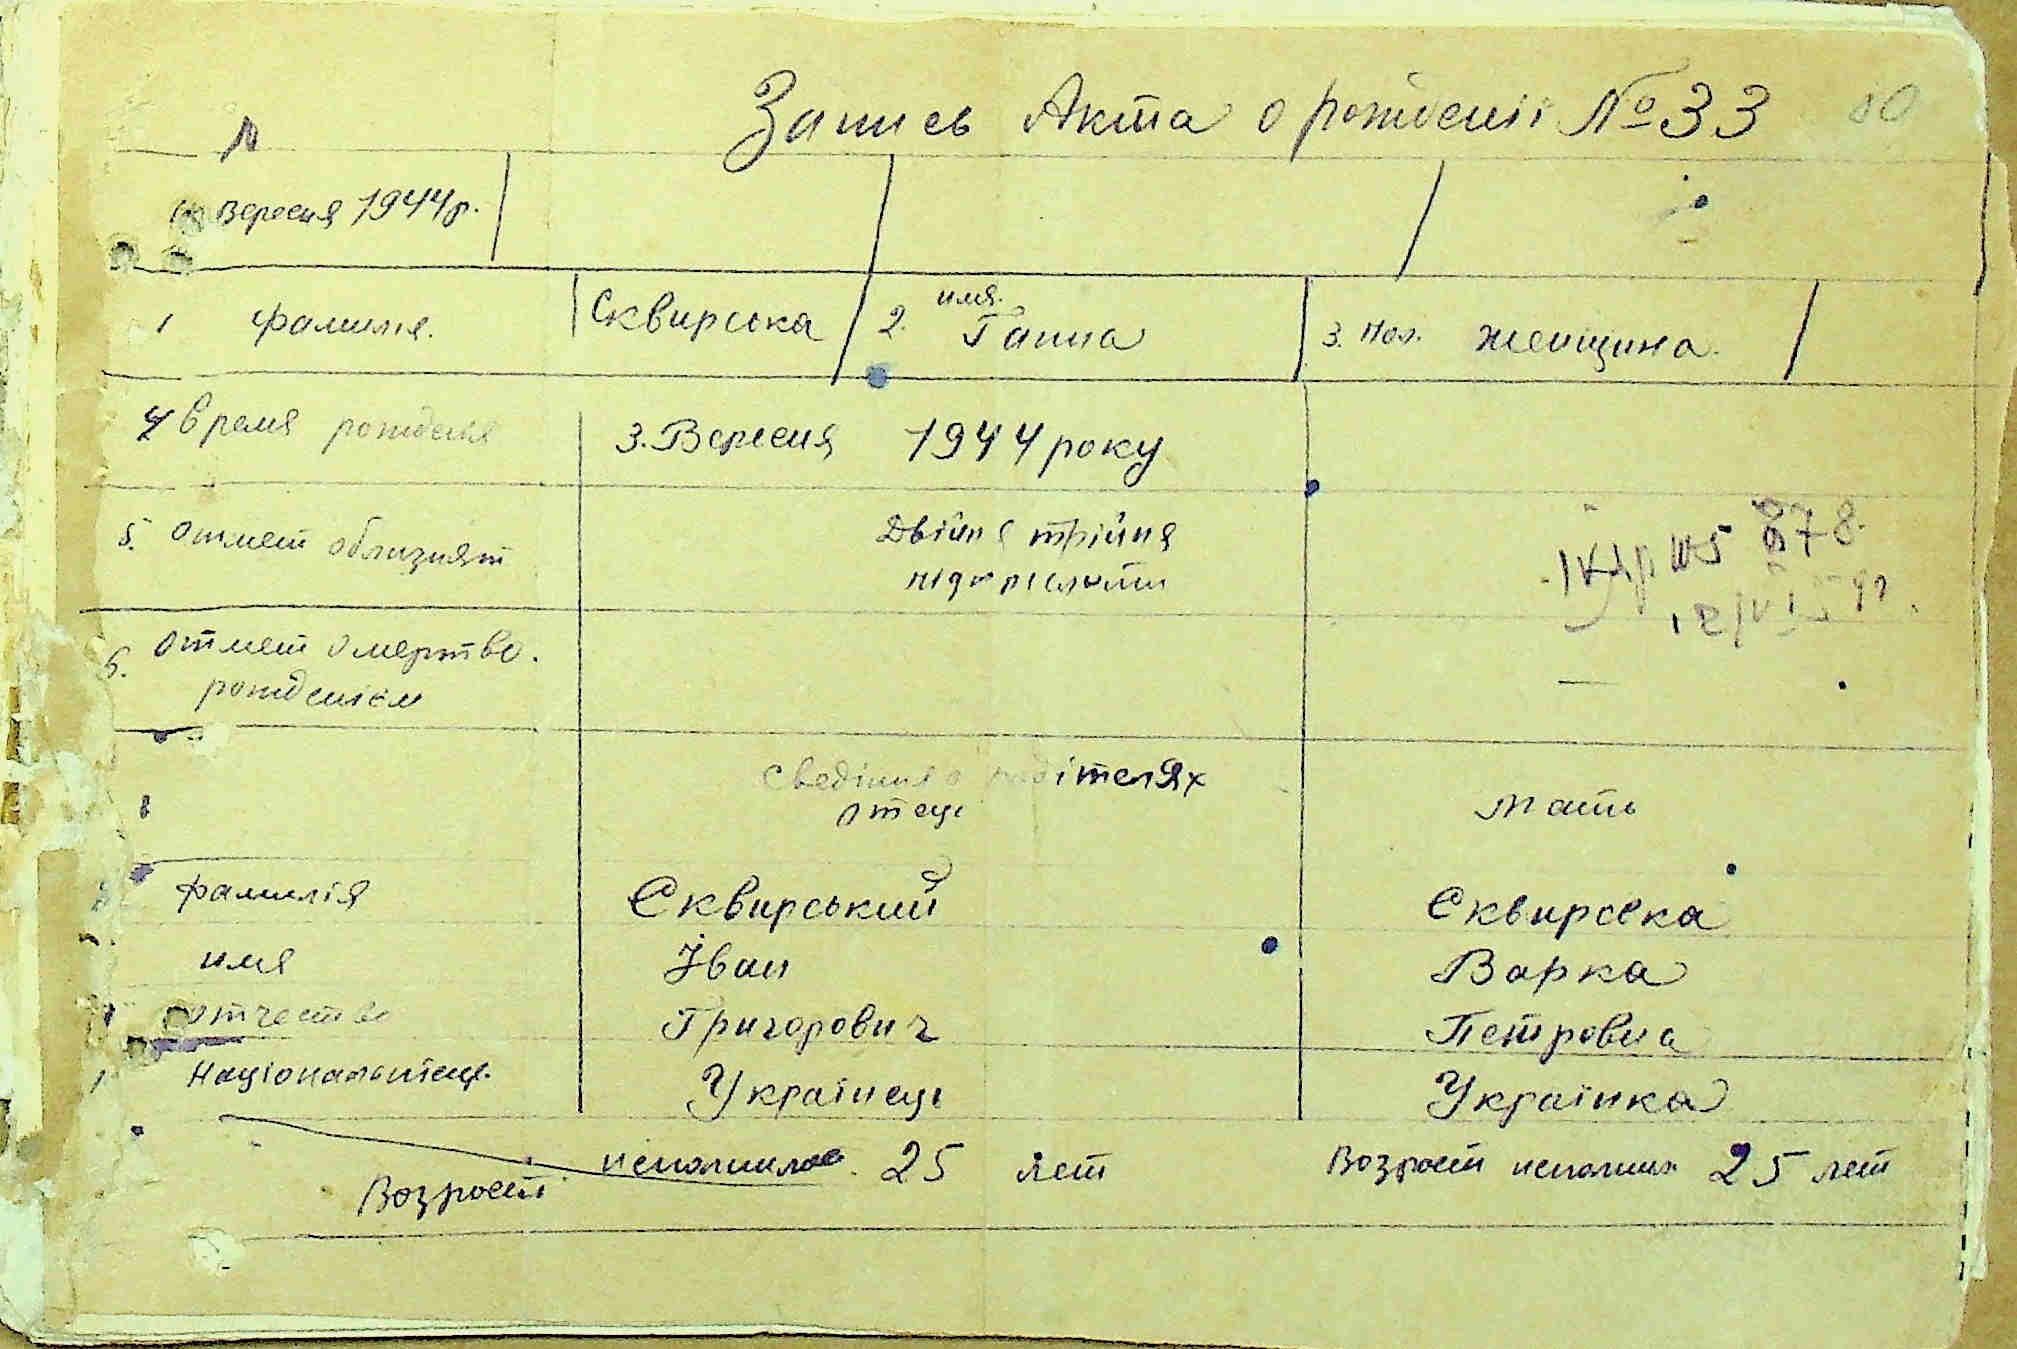 Запись Акта о рожденіі № 33 80
Вересня 1944 р.
1 фамилия. Сквирська 2. имя. Ганна 3. Пол. женщина.
4 время рождения 3. Вересня 1944 року
5. отмет облизнят Двійня трійня
підкреслити
878.
6. отмет о мертво.
рожденієм
сведіния о родітелях
отець мать
фамилія Сквирський Сквирска
имя Іван Варка
отчество Григорович Петровна
Національность Українець Українка
Возраст исполнилос. 25 лет Возраст исполнил 25 лет